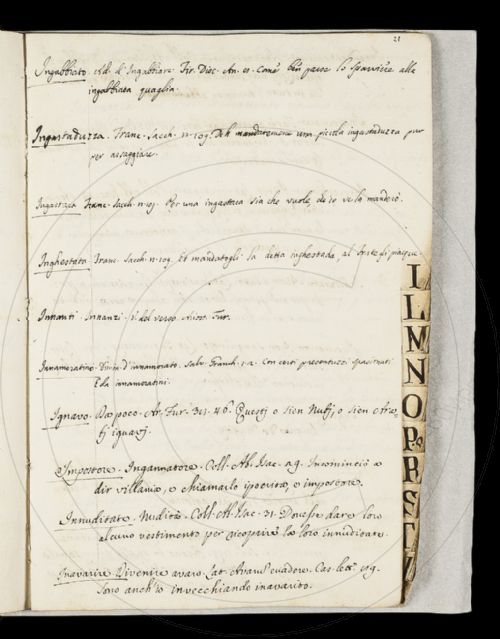 21
Ingabbiato. Ad. d'Ingabbiare. Fir. Disc. An. 21. come ben parse lo sparviere alla
ingabbiata quaglia.
Ingastaduzza. Franc. Sacch. n. 109. Deh mandatemene una piccola ingastaduzza pur
per assaggiare.
Ingastara Franc. Sacch. n. 109. Per una ingastara sia che vuole, che io ve la manderò.
Inghestata. Franc. Sacch. n. 109. Et mandatogli la detta inghestada, al frate gli piacque
Innanti. Innanzi. del verso. Ariost. Fur.
Innamoratino. d'innamorato. Salv. Granch. 1. 2. Con certi
innamoratini.
Ignavo. Da poco. Ar. Fur. 31. 46. Questi o sien o sien
ignavi.
Impostore. Ingannatore. Coll. Ab. Isac. 29. Incominciò a
dir villania, e chiamarlo ipocrita, e impostore.
Innuditate. Nudità. Coll. Ab. Isac. 31. Dovesse dare loro
alcuno vestimento per ricoprire la loro innuditate.
Inavarire Divenire avaro. Lat. evadere. Cas. lett. 59.
sono anch'io invecchiando inavarito.
I
L
M
N
O
P
R
S
T